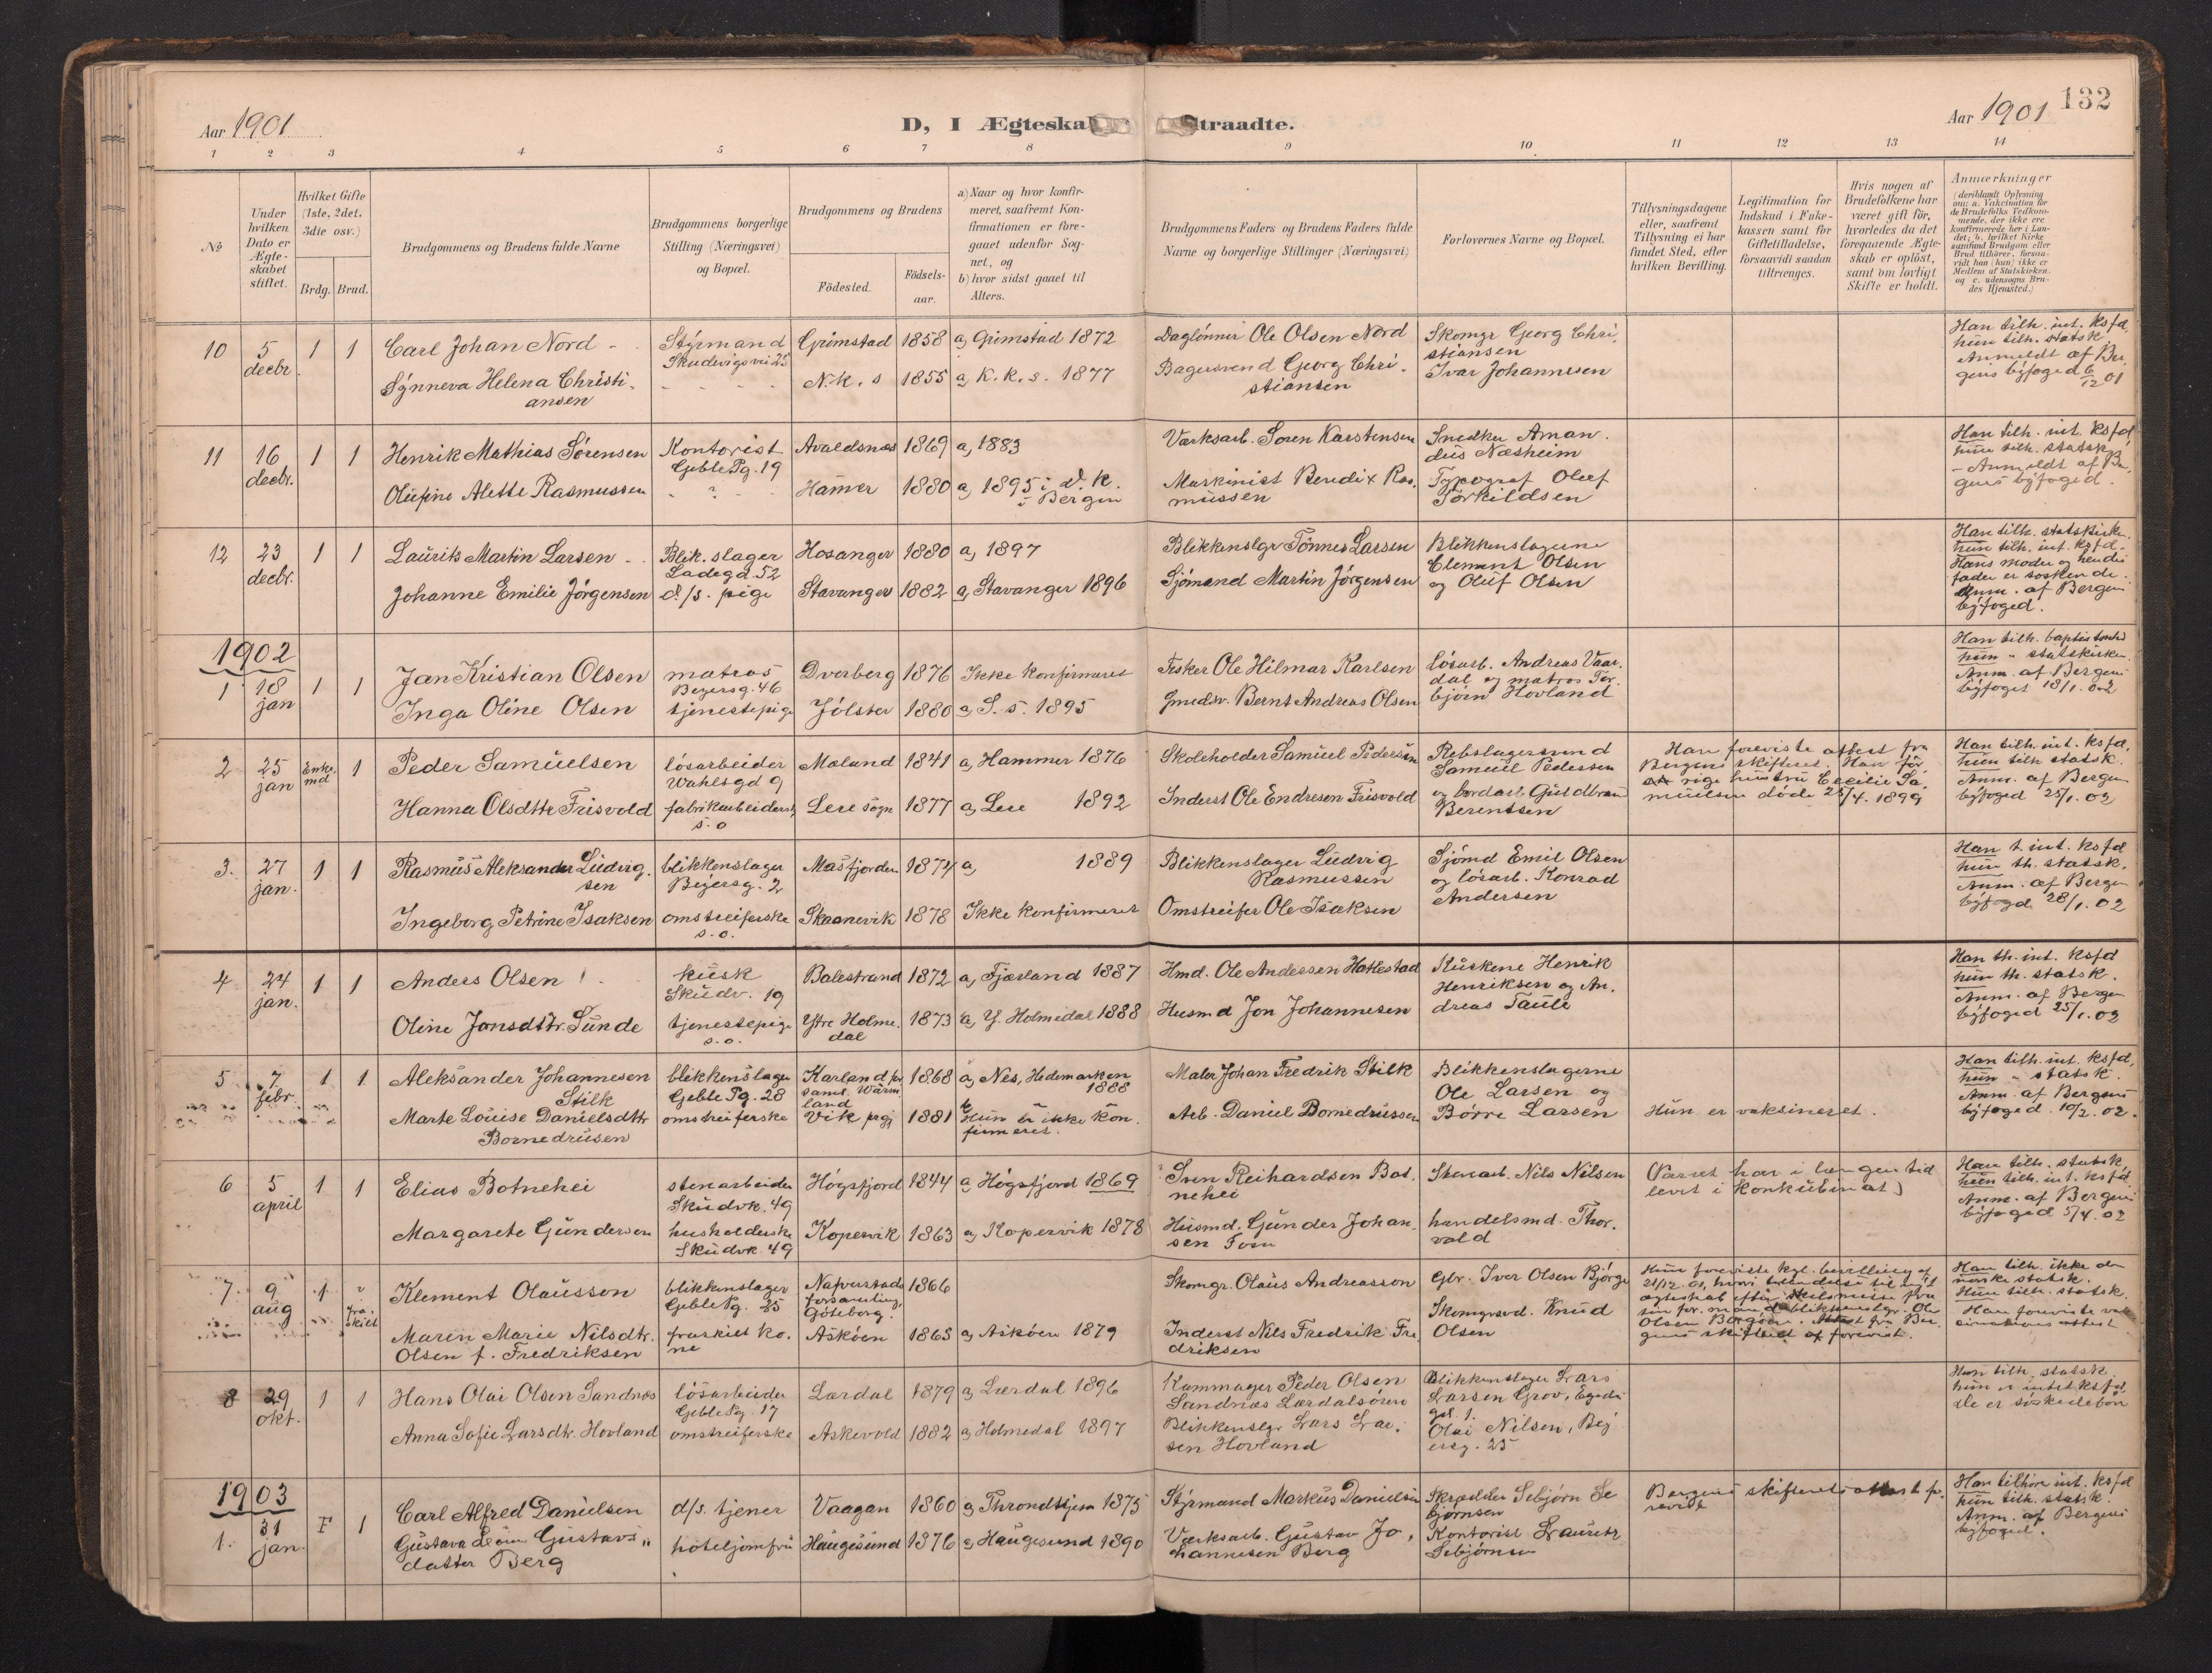 Aar 1901
D, I Ægteska
traadte.
Aar 1901
132
1 2 3 4 5 6 7 8 9 10 11 12 13 14
No
Under hvilken Dato er Ægteskabet stiftet.
Hvilket Gifte (1ste, 2det, 3die osv.)
Brdg. Brud.
Brudgommens og Brudens fulde Navne
Brudgommens borgerlige Stilling (Næringsvei) og Bopæl.
Brudgommens og Brudens
Fødested.
Fødselsaar.
a) Naar og hvor konfirmeret, saafremt Konfirmationen er foregaaet udenfor Sognet, og
b) hvor sidst gaaet til Alters.
Brudgommens Faders og Brudens Faders fulde Navne og borgerlige Stillinger (Næringsvei)
Forlovernes Navne og Bopæl.
Tillysningsdagene eller, saafremt Tillysning ei har fundet Sted, efter hvilken Bevilling.
Legitimation for Indskud i Enkekassen samt for Giftetilladelse, forsaavidt saadan tiltrænges.
Hvis nogen af Brudefolkene har været gift før, hvorledes da det foregaaende Ægteskab er opløst, samt om lovligt Skifte er holdt.
Anmærkninger
(deriblandt Oplysning om: a. Vakcination for de Brudefolks Vedkommende, der ikke ere konfirmerede her i Landet; b. hvilket Kirkesamfund Brudgom eller Brud tilhører, forsaavidt han (hun) ikke er Medlem af Statskirken, og c. udensogns Brudes Hjemsted.)
10 5 decbr. 1 1
Carl Johan Nord
Styrmand Skudevigsvei 25
Grimstad 1858 a, Grimstad 1872
Daglønner Ole Olsen Nord
Skomgr Georg Christiansen
Han tilh. int. ksfd
hun tilh. statsk.
Anmeldt af Bergens byfoged 6/12 01
Synneva Helena Christiansen
N.k. s 1855 a, K.k.s. 1877
Bagersvend Georg Christiansen
Ivar Johannesen
11 16 decbr. 1 1
Henrik Mathias Sørensen
Kontorist Geble Pg. 19
Avaldsnæs 1869 a, 1883
Værksarb. Soren Karstensen
Snedker Amandus Næsheim
Han tilh. int. ksfd
hun tilh. statsk
- Anmeldt af Bergens byfoged.
Olufine Alette Rasmussen
Hammer 1880 a, 1895 i d. k. i Bergen
Maskinist Bendix Rasmussen
Typograf Oluf Torkildsen
12 23 decbr. 1 1
Laurits Martin Larsen
Blik.slager Ladegd. 52
Hosanger 1880 a, 1897
Blikkenslgr Tönnes Larsen
Blikkenslagerne Clement Olsen og Oluf Olsen
Han tilh. statskirken
hun tilh. int. ksfd.
Hans moder og hendes fader er søskende.
Anm. af Bergens byfoged.
Johanne Emilie Jørgensen
d./s. pige
Stavanger 1882 a, Stavanger 1896
Sjømand Martin Jørgensen
1902
1 18 jan 1 1
Jan Kristian Olsen
matros Beyersg. 46
Dverberg 1876 Ikke konfirmeret
Fisker Ole Hilmar Karlsen
Løsarb. Andreas Vaardal og matros Torbjørn Hovland
Han tilh. baptist
hun " statskirken.
Anm. af Bergens byfoged 18/1. 02
Inga Oline Olsen
tjenestepige
Jølster 1880 a, S. s. 1895
Gmedsv. Bernt Andreas Olsen
2 25 jan Enkemd 1
Peder Samuelsen
løsarbeider Wahlsgd 9
Moland 1841 a, Hammer 1876
Skoleholder Samuel Pedersen
Rebslagersvend Samuel Pedersen og bordarb Guldbrand Berentsen
Han foreviste attest fra Bergens skifteret. Han forrige hustru Cecilie Samuelsen døde 25/4. 1899
Han tilh. int. ksfd,
hun tilh statsk.
Anm. af Bergen byfoged 25/1. 02
Hanna Olsdtr Frisvold
fabrikarbeiderske s.o
Lere sogn 1877 a, Lere 1892
Inderst Ole Endresen Frisvold
3. 27 jan. 1 1
Rasmus Aleksander Ludvigsen
blikkenslager Beyersg. 2
Masfjorden 1874 a, 1889
Blikkenslager Ludvig Rasmussen
Sjømd Emil Olsen og løsarb. Konrad Andersen
Han t. int. ksfd
hun th. statsk.
Anm. af Bergen byfogd 28/1. 02
Ingeborg Petrine Isaksen
omstreiferske s.o.
Skaanevik 1878 Ikke konfirmeret
Omstreifer Ole Isaksen
4 24 jan. 1 1
Anders Olsen
kusk Skudv. 19
Balestrand 1872 a, Fjærland 1887
Hmd. Ole Andersen Hatlestad
Kuskene Henrik Henriksen og Andreas Taule
Han th. int. ksfd
hun th. statsk.
Anm. af Bergen byfoged 25/1. 02
Oline Jonsdtr. Sunde
tjenestepige s.o.
Ytre Holmedal 1873 a, Y. Holmedal 1888
Husmd Jon Johannesen
5 7 febr. 1 1
Aleksander Johannesen Stilk
blikkenslager Geble Pg. 28
Karland forsaml. Wärmland 1868 a, Nes, Hedemarken 1888
Maler Johan Fredrik Stilk
Blikkenslagerne Ole Larsen og Børre Larsen
Han tilh. int. ksfd,
hun " statsk.
Anm. af Bergens byfoged. 10/2. 02.
Marte Louise Danielsdtr Bornedrusen
omstreiferske
Vik prgj 1881 Hun er ikke konfirmeret.
Arb. Daniel Bornedrussen
Hun er vaksineret.
6 5 april 1 1
Elias Botnehei
stenarbeider Skudvk. 49
Høgsfjord 1844 a, Høgsfjord 1869
Sven Reihardsen Botnehei
Stenarb. Nils Nilsen
(Parret har i længere tid levet i konkubinat)
Han tilh. statsk
hun tilh. int. ksfd.
Anm. af Bergens byfoged 5/4. 02
Margarete Gundersen
husholderske Skudvk. 49
Kopervik 1863 a, Kopervik 1878
Husmd. Gunder Johansen Fosn
handelsmd. Thorvald
7. 9 aug 1 fraskilt
Klement Olausson
blikkenslager Geble Pg. 25
Nafverstads forsamling, Göteborg. 1866
Skomgr. Olaus Andreasson
Gbr. Iver Olsen Bjørge
Hun foreviste kgl. bevilling af 21/12. 01, hvori tilladelse til nyt ægteskab efter skilsmisse fra sin for. mand, blikkenslgr. Ole Olsen Borgøen. Attest fra Bergens skifteret af forevist.
Han tilh. ikke den norske statsk.
Hun tilh. statsk.
Han foreviste vaccinations attest
Maren Marie Nilsdtr. Olsen f. Fredriksen
fraskilt kone
Askøen 1865 a, Askøen 1879
Inderst Nils Fredrik Fredriksen
Skomgrsvd. Knud Olsen
8 29 okt. 1 1
Hans Olai Olsen Sandnæs
løsarbeider Geble Pg. 17
Lærdal 1879 a, Lærdal 1896
Kammager Peder Olsen Sandnæs Lærdalsøren
Blikkenslager Lars Larsen Grov, Egedi gd. 1.
Han tilh. statsk.
hun er intet ksfd
De er søskedebørn
Anna Sofie Larsdtr. Hovland
omstreiferske
Askevold 1882 a, Holmedal 1897
Blikkenslgr Lars Larsen Hovland
Olai Nilsen, Beyersg. 25
1903
1. 31 jan. F 1
Carl Alfred Danielsen
d/s. tjener
Vaagan 1860 a, Throndhjem 1875
Styrmand Markus Danielsen
Skrædder Sebjørn Sebjørnsen
Bergens skifterets attest forevist
Han tilhøre int. ksfd
hun tilh. statsk.
Anm. af Bergens byfoged.
Gustava Gustavsdatter Berg
hoteljomfru
Haugesund 1876 a, Haugesund 1890
Værksarb. Gustav Johannesen Berg
Kontorist Lauritz Sebjørnsen